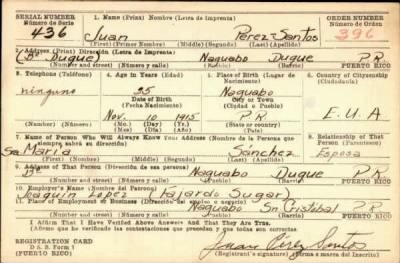 SERIAL NUMBER 1. Name (Print) Nombre (Letra de Imprenta) ORDER NUMBER
Número de Serie Número de Orden
436 Juan Perez-Santos 396
(First) (Primer Nombre) (Middle) (Segundo) (Last) (Apellido)
2. Address (Print) Dirección (Letra de Imprenta)
(Bo Duque) Naguabo Duque P R
(Number and street) (Número y calle) (Town) (Pueblo) (Barrio) PUERTO RICO
3. Telephone (Teléfono) 4. Age in Years (Edad) 5. Place of Birth (Lugar de Nacimiento) 6. Country of Citizenship (Ciudadanía)
ninguno 25 Naguabo
Date of Birth City or Town
(Fecha Nacimiento) (Ciudad o Pueblo)
Nov. 10 1915 P R E. U. A
(Number) (Número) (Mo.) (Day) (Yr.) State or country)
(Mes) (Día) (Año) (Estado o país)
7. Name of Person Who Will Always Know Your Address (Nombre de la Persona que siempre sabrá su dirección) 8. Relationship of That Person (Parentesco)
Sa Maria Sanchez Esposa
(First) (Primero) (Middle) (Segundo) (Last) (Apellido)
9. Address of That Person (Dirección de esa persona)
Naguabo Duque P R
(Number and street) (Número y calle) (Town) (Pueblo) (Barrio) PUERTO RICO
10. Employer's Name (Nombre del Patrono)
Joaquin Lopez (Fajardo Sugar)
11. Place of Employment or Business (Dirección del empleo o negocio)
Naguabo Sn Cristobal P R
(Number and street) (Número y calle) (Town) (Pueblo) (Barrio) PUERTO RICO
I Affirm That I Have Verified Above Answers and That They Are True
(Afirmo que he verificado las contestaciones que preceden y que todas son correctas.)
REGISTRATION CARD
D. S. S. Form 1
(PUERTO RICO)
Juan Pérez Santos
(Registrant's signature) (Forma o marca del Inscrito)